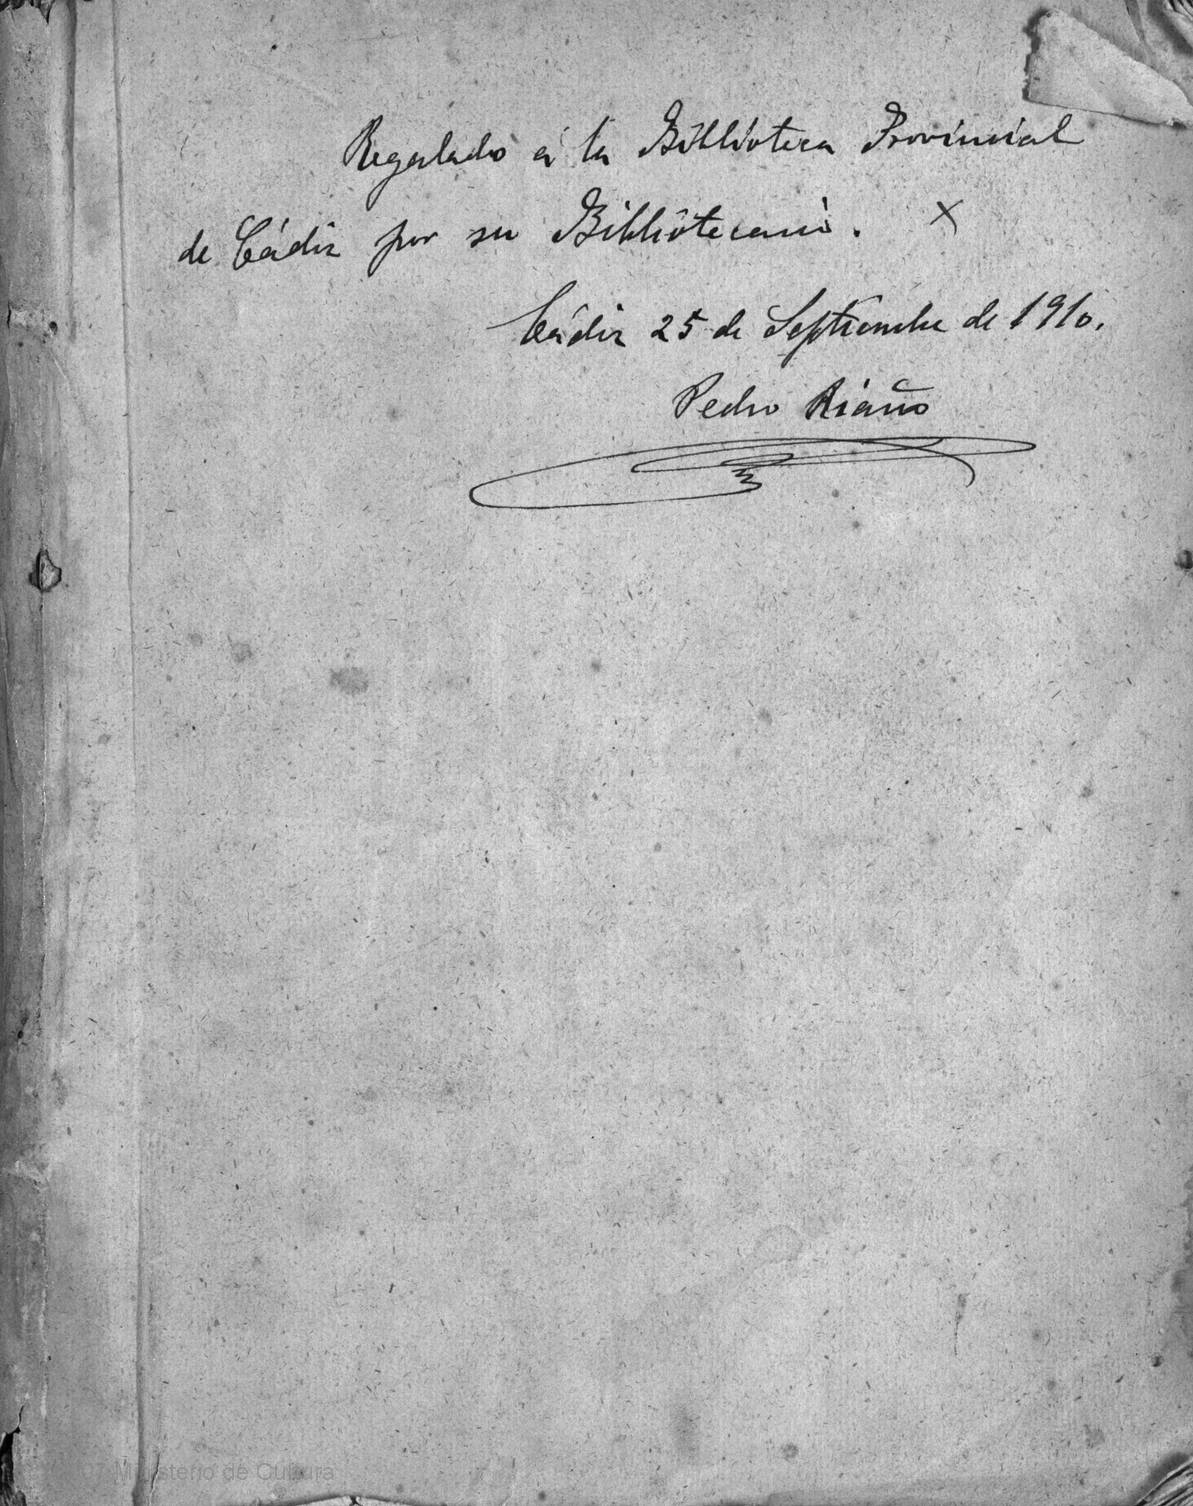 Regalado á la Biblioteca Provincial
de Cádiz por su Bibliotecario. X
Cádiz 25 de Septiembre de 1910.
Pedro Riaño
Ministerio de Cultura